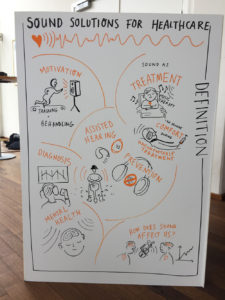 SOUND SOLUTIONS FOR HEALTHCARE
DEFINITION
MOTIVATION
TRAINING
+ BEHANDLING
SOUND AS
TREATMENT
MUSIC
THERAPY
COMFORT
ASSISTED
HEARING
PREVENTION
DIAGNOSIS
MENTAL
HEALTH
HOW DOES SOUND
AFFECT US?